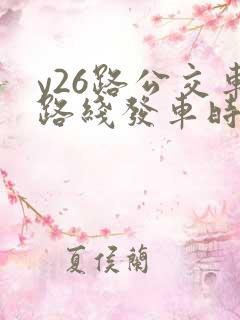 y26路公交車
路綫發車時
夏侯蘭